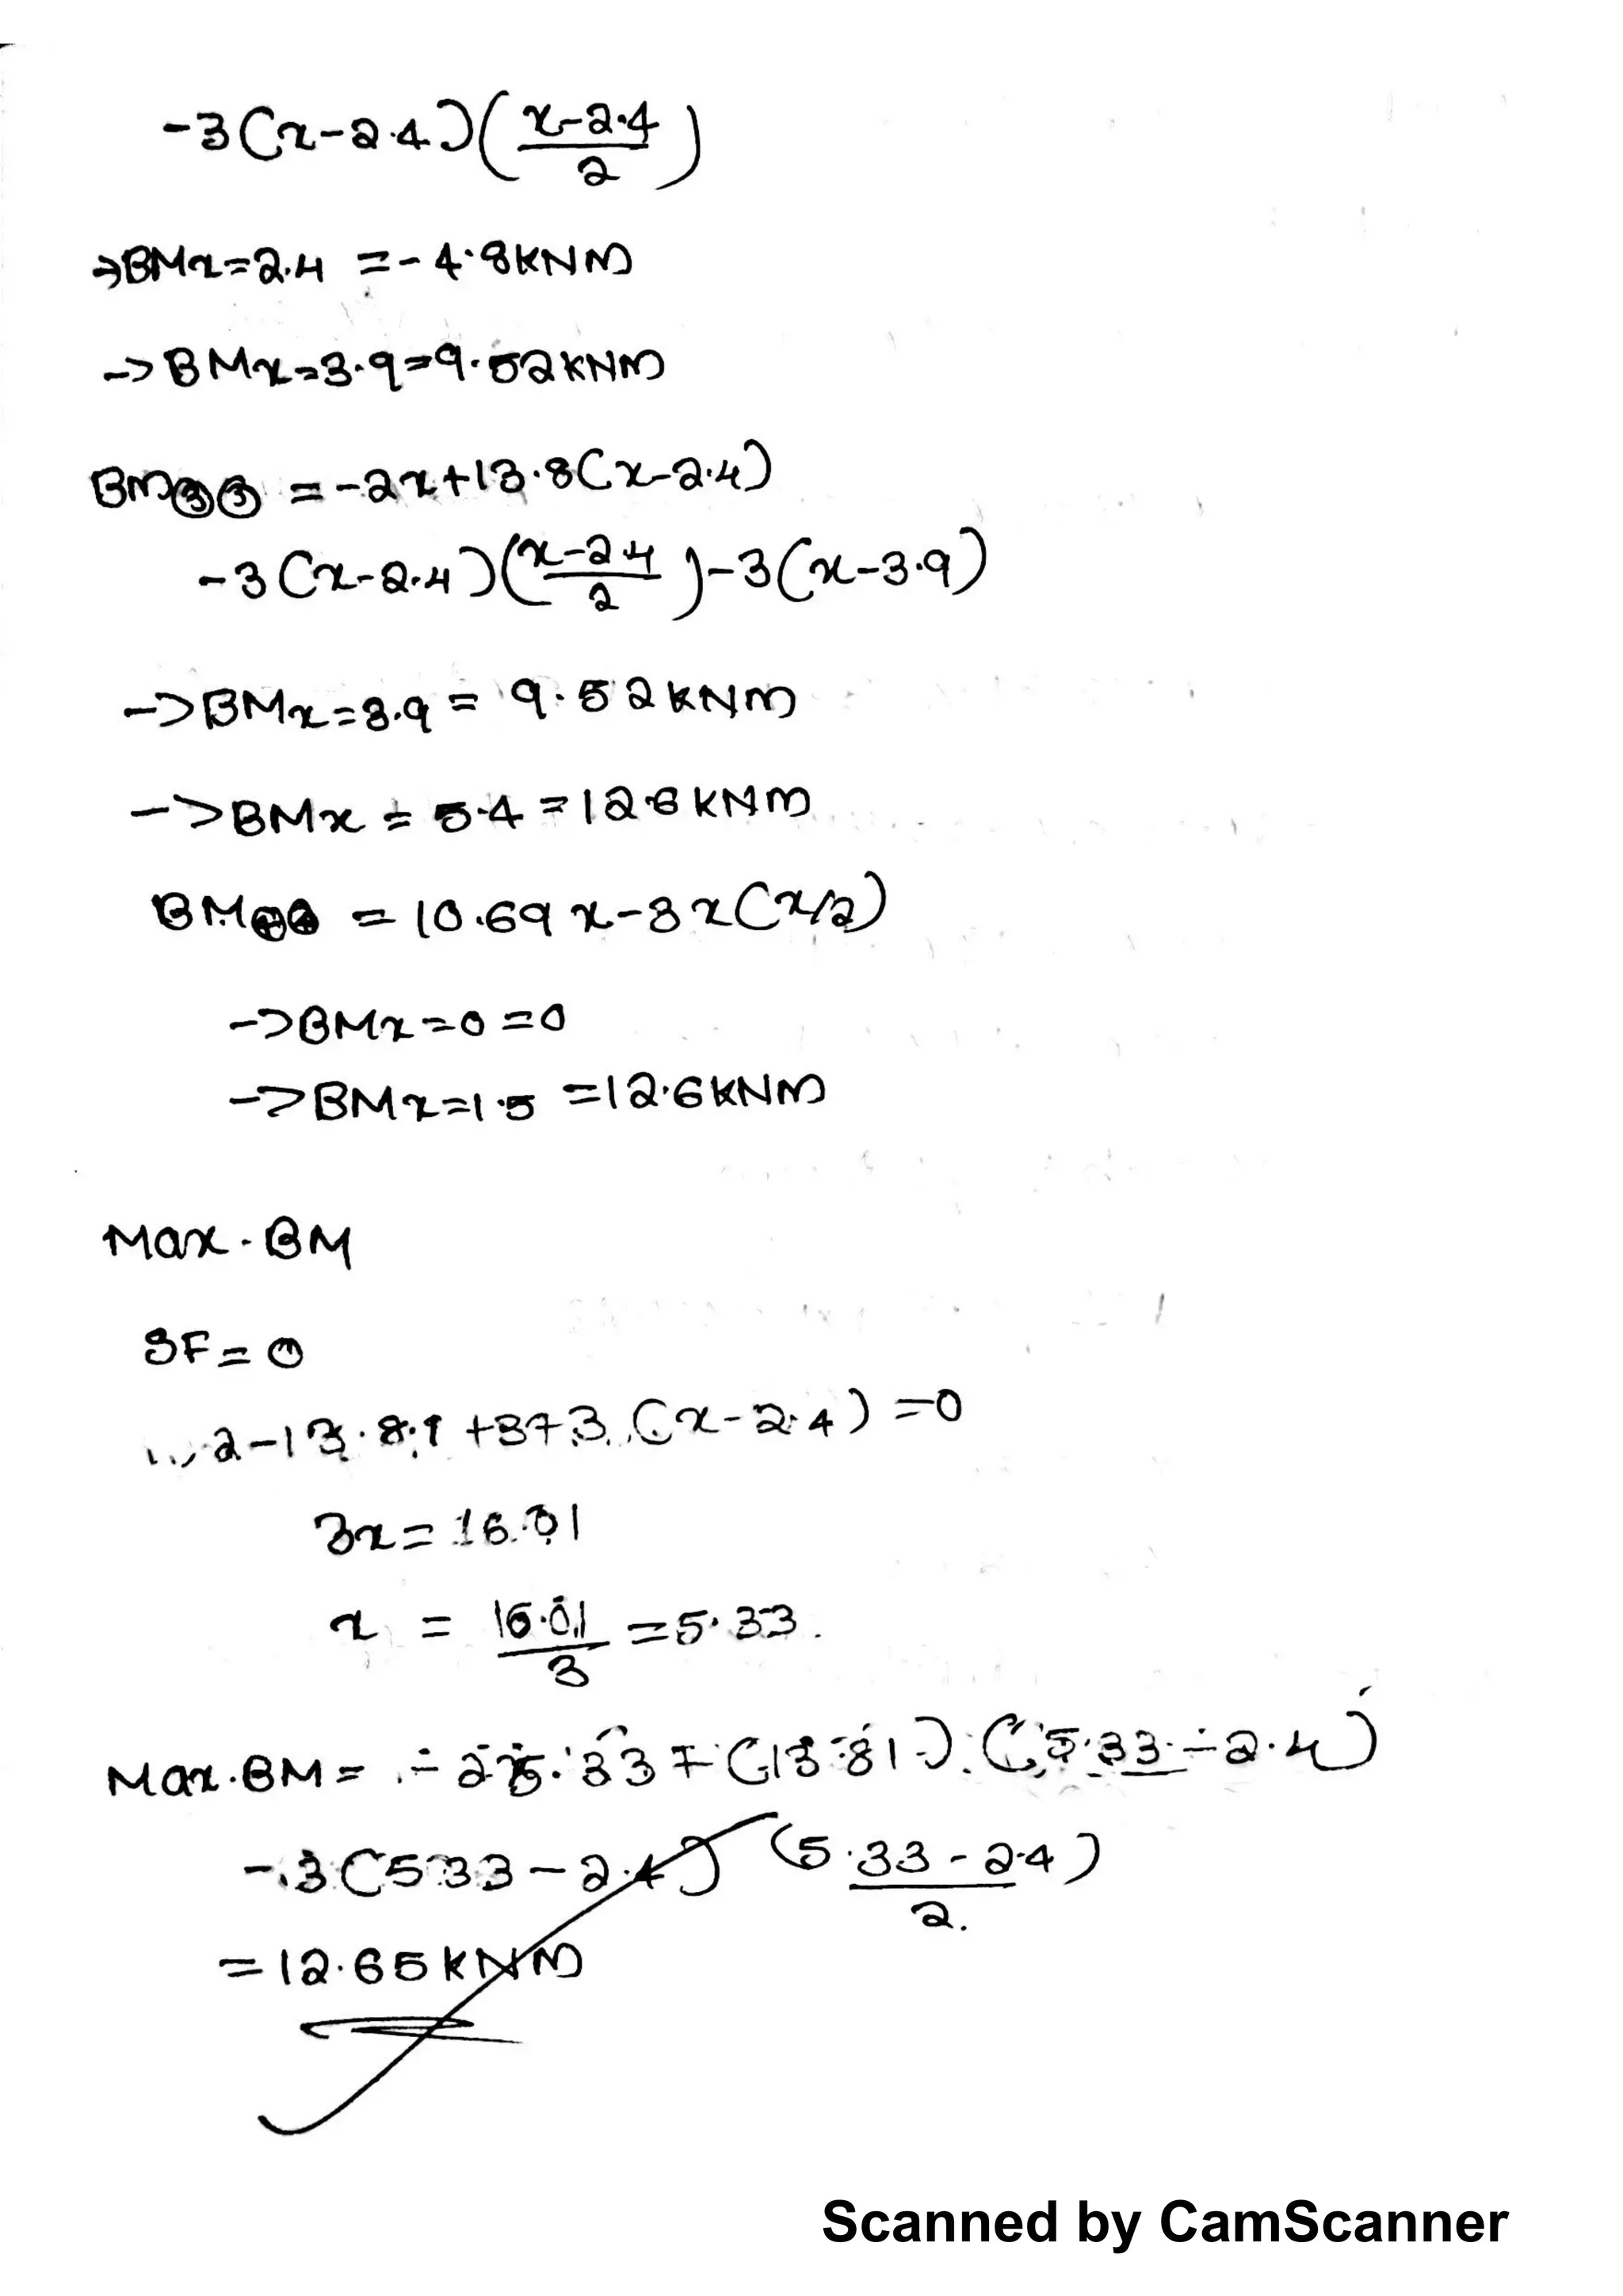 -3(x-2.4)(x-2.4/2)
⇒BMx=2.4 = -4.8KNM
->BMx=3.9=9.52KNM
BM③③ = -2x+13.8(x-2.4)
-3(x-2.4)(x-2.4/2)-3(x-3.9)
->BMx=3.9 = 9.52KNM
->BMx = 5.4 = 12.6KNM
BM = 10.69x-3x(x/2)
->BMx=0=0
->BMx=1.5 = 12.6KNM
Max.BM
SF=0
2-13.81+3+3(x-2.4)=0
3x=16.01
x = 16.01/3 = 5.33.
Max.BM = -25.33+(13.81)(5.33-2.4)
-3(5.33-2.4)(5.33-2.4/2)
=12.65KNM
Scanned by CamScanner